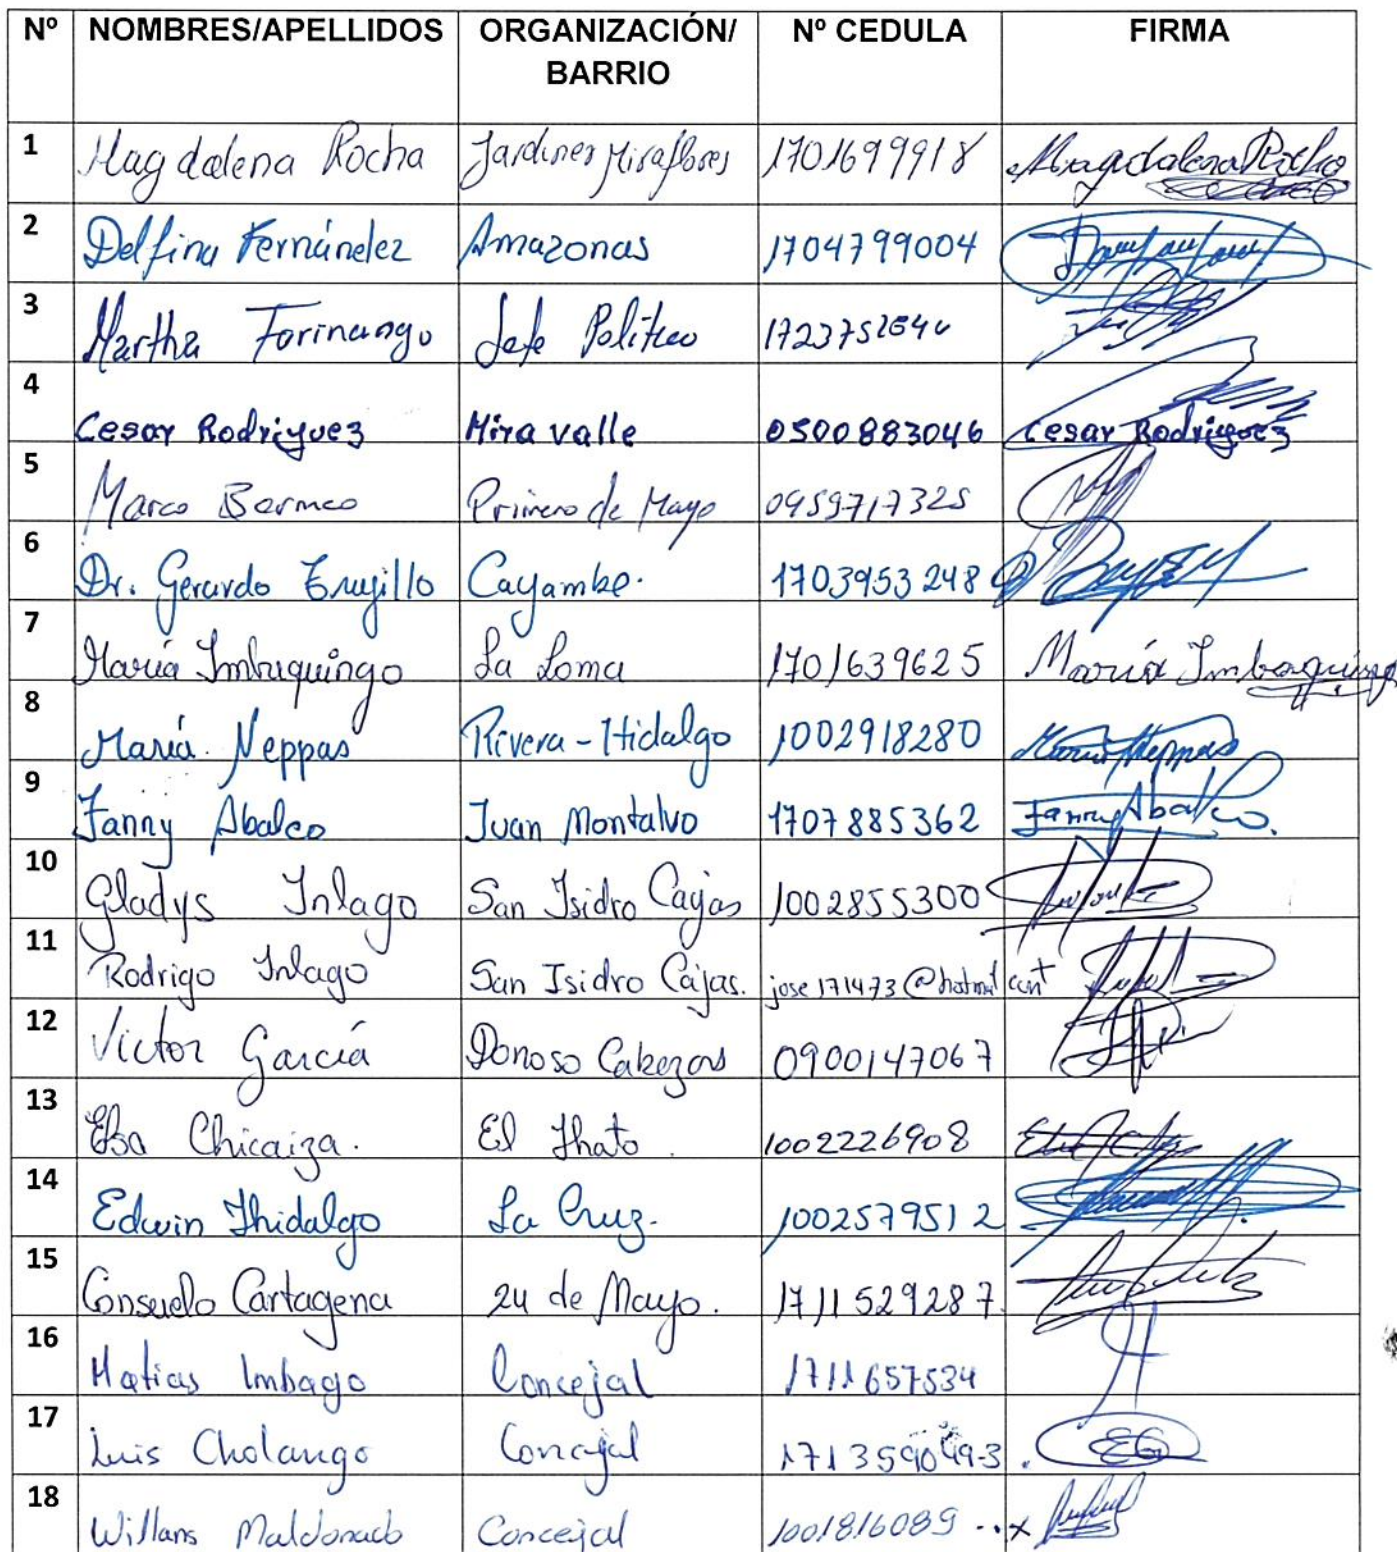 Nº NOMBRES/APELLIDOS ORGANIZACIÓN/ BARRIO Nº CEDULA FIRMA
1 Magdalena Rocha Jardines Miraflores 1701699918 Magdalena Rocha
2 Delfina Fernández Amazonas 1704799004
3 Martha Farinango Jefe Político
4 Cesar Rodriguez Miravalle 0500883046 Cesar Rodriguez
5 Marco Bermeo Primero de Mayo 0959717325
6 Dr. Gerardo Trujillo Cayambe. 1703953248
7 María Imbaquingo La Loma 1701639625 María Imbaquingo
8 María Neppas Rivera-Hidalgo 1002918280 María Neppas
9 Fanny Abalco Juan Montalvo 1707885362 Fanny Abalco.
10 Gladys Inlago San Isidro Cajas 1002855300
11 Rodrigo Inlago San Isidro Cajas. jose171473@hotmail
12 Victor García Donoso Cabezas 0900147067
13 Elsa Chicaiza. El Hato. 1002226908
14 Edwin Hidalgo La Cruz. 1002579512
15 Consuelo Cartagena 24 de Mayo. 1711529287
16 Matias Imbago Concejal 1711657534
17 Luis Cholango Concejal 171359049-3
18 Willans Maldonado Concejal 1001816089